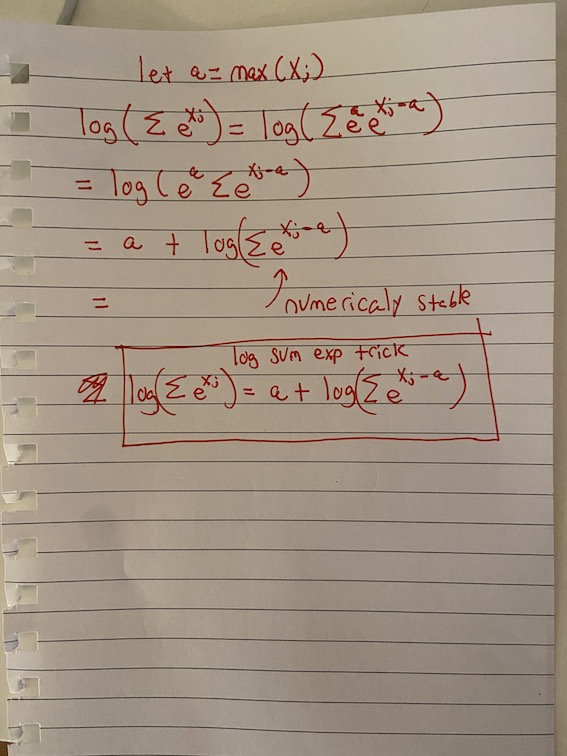 let a = max(Xj)
log(Σ e^xj) = log(Σ e^a e^xj-a)
= log(e^a Σ e^xj-a)
= a + log(Σ e^xj-a)
= numericaly stable
log sum exp trick
log(Σ e^xj) = a + log(Σ e^xj-a)